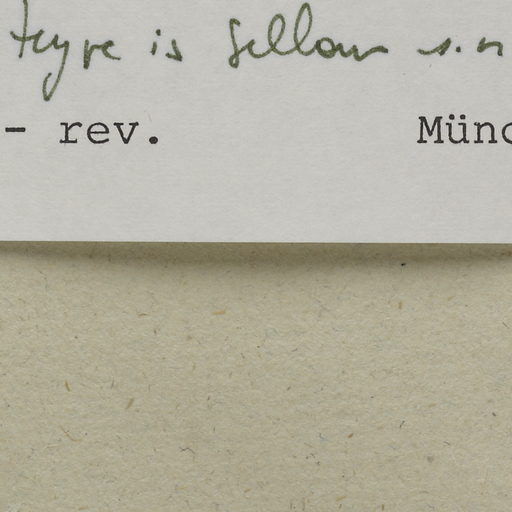 is Sellow s.n
- rev. Münc